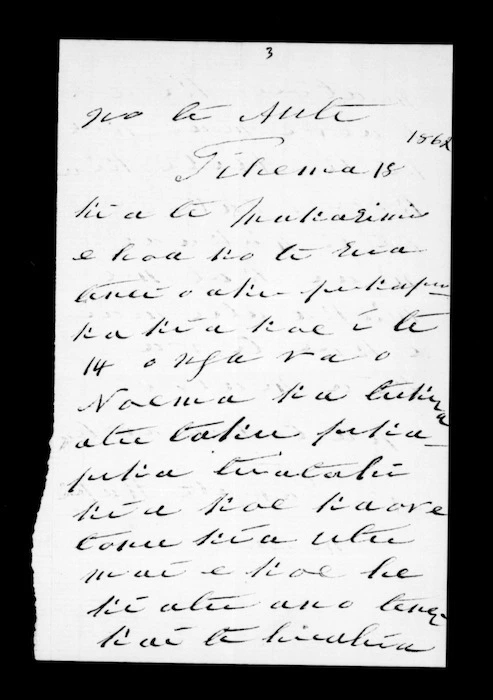 3
no te Aute
1862
Tihema 18
kia te Makarini
e hoa ko te rua
tenei o aku pukapu
ka kia koe i te
14 o nga ra o
Noema ka tukua
atu taku puka-
puka tuatahi
kia koe kaore
tonu kia utu
mai e koe he
ki atu ano tenei